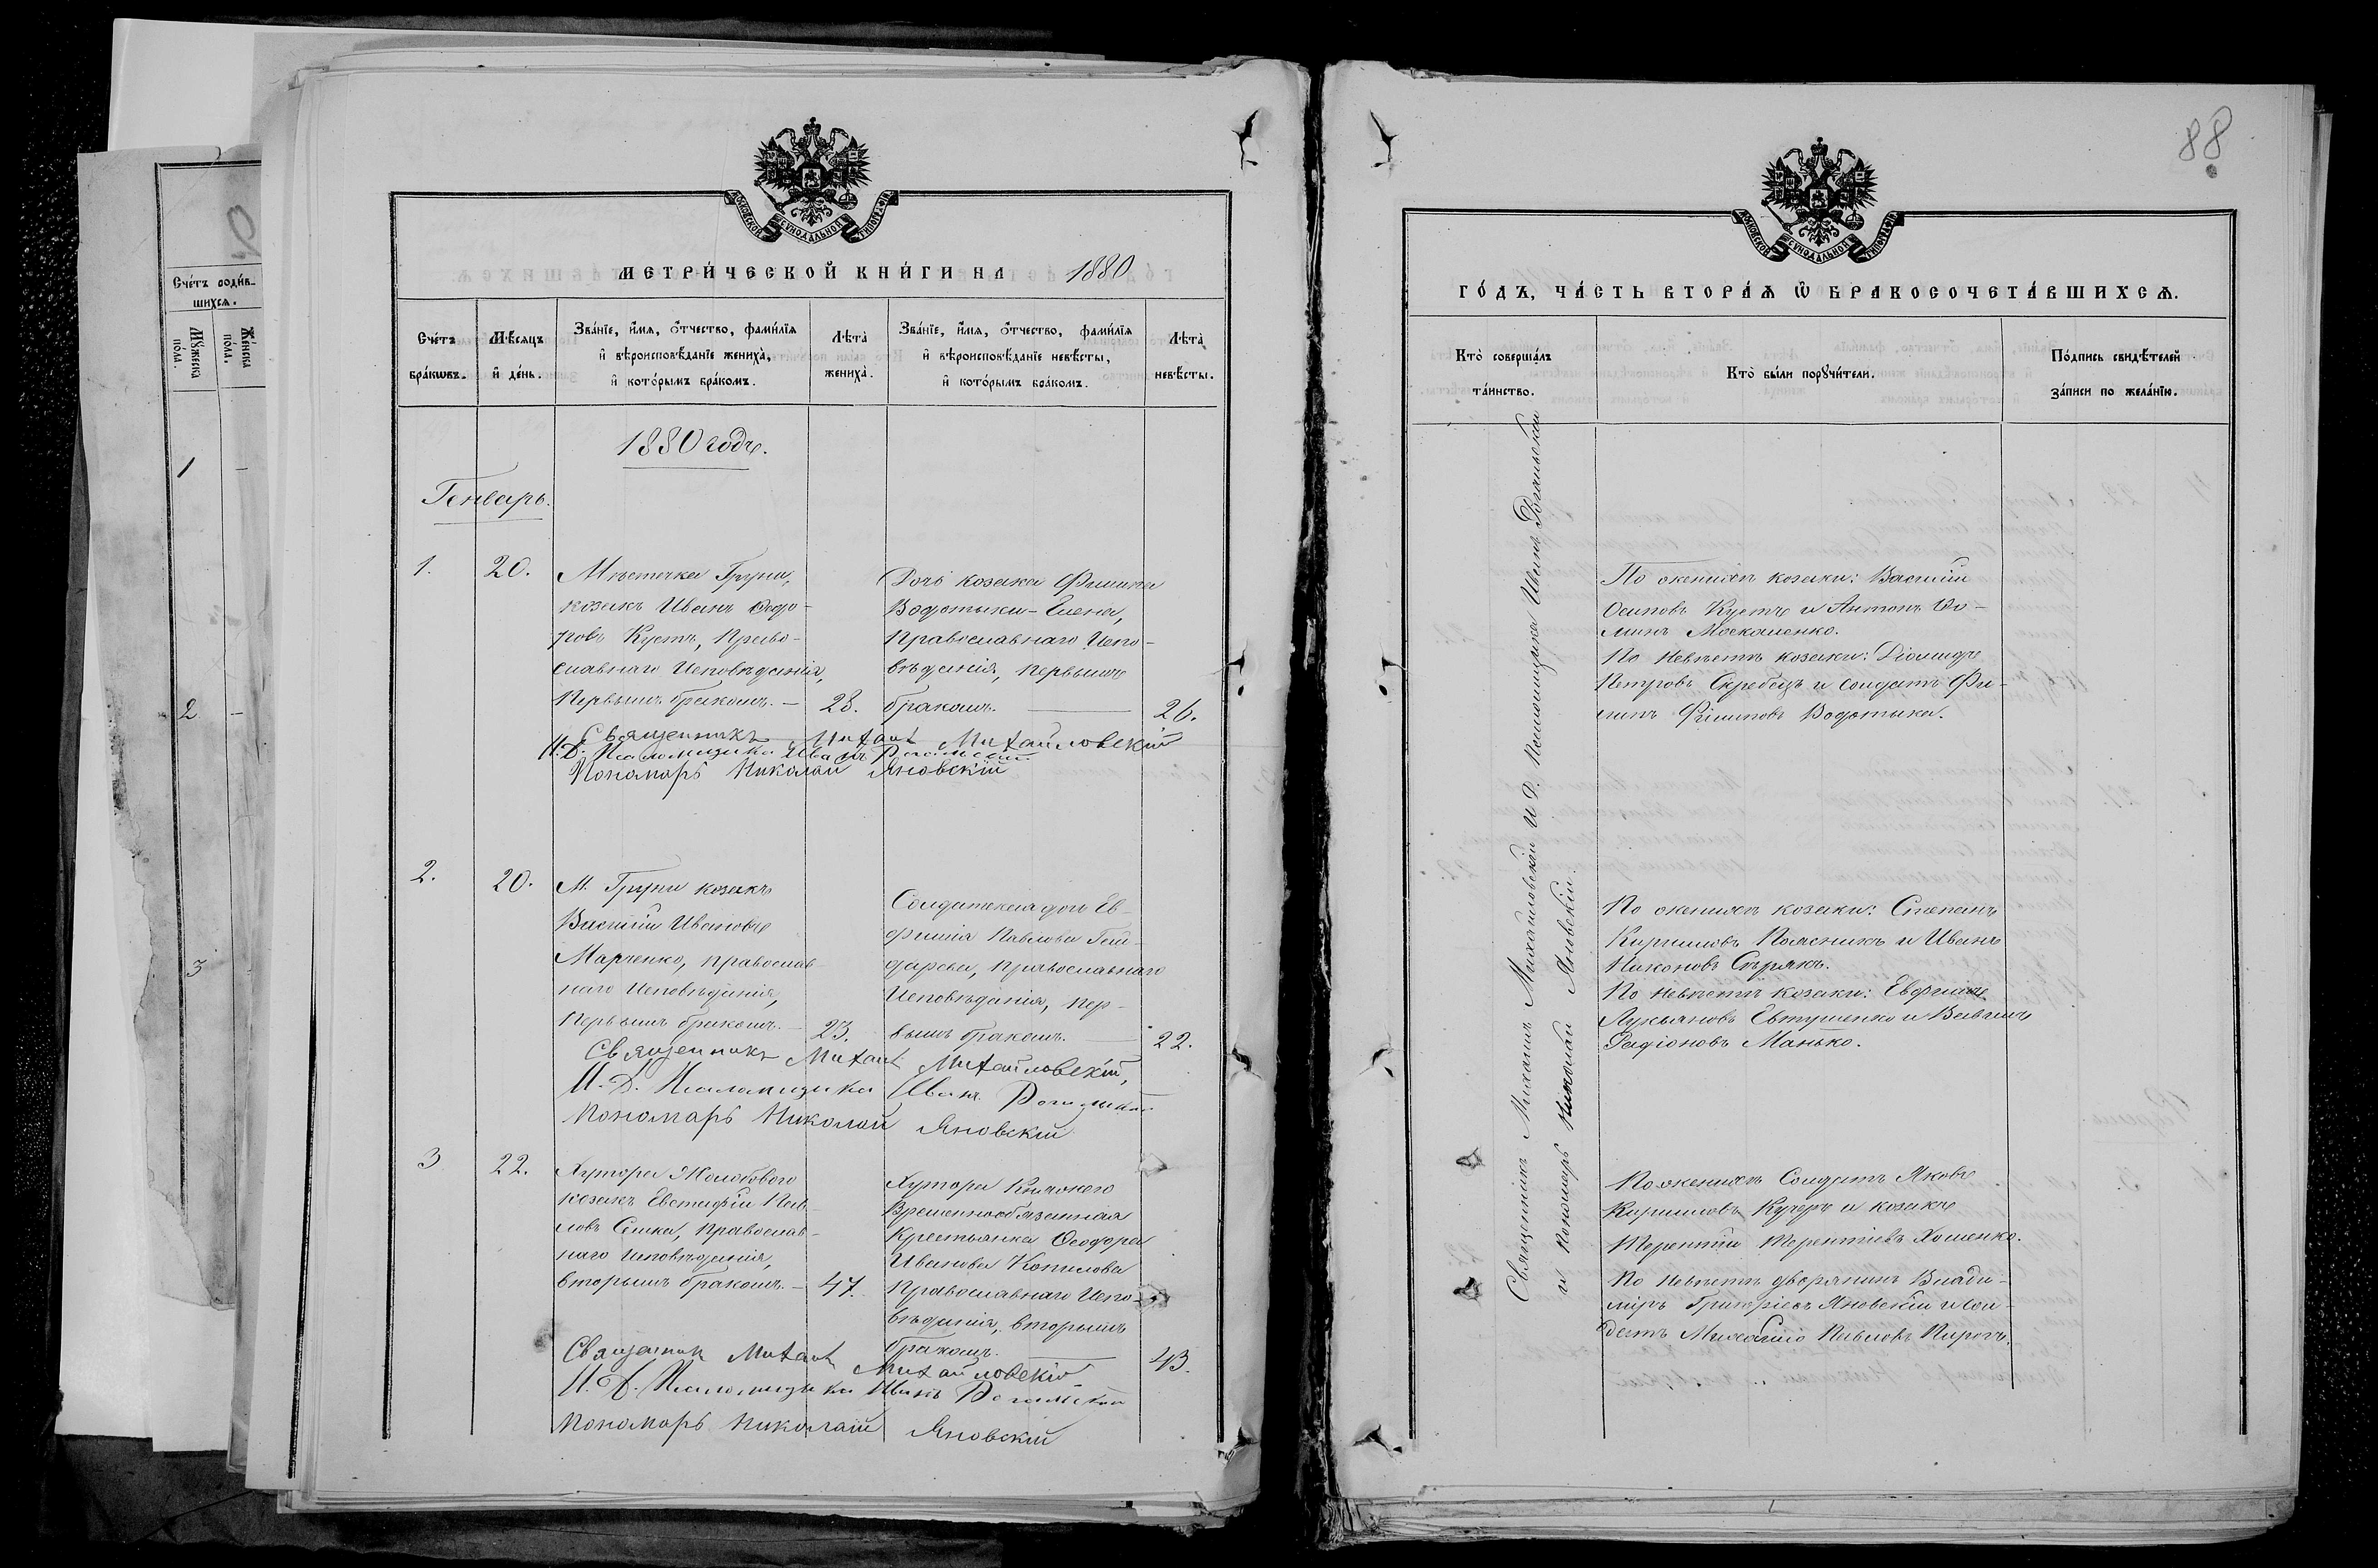 Счéтъ родив-
шихся.
Мꙋжеска пóла.
Жéнска пóла.
1
2
3
МОСКОВСКОЙ СѴНОДАЛЬНОЙ ТИПОГРАФІИ
МЕТРИ́ЧЕСКОЙ КНИ́ГИ НА 1880
Счéтъ
брáкѡвъ.
Мѣ́сяцъ
и҆ дéнь.
Звáнїе, и҆́мѧ, ѻ҆́тчество, фами́лїѧ
и҆ вѣроисповѣ́данїе женихà,
и҆ котóрымъ брáкомъ.
Лѣ́та
женихà.
Звáнїе, и҆́мѧ, ѻ҆́тчество, фами́лїѧ
и҆ вѣроисповѣ́данїе невѣ́сты,
и҆ котóрымъ брáкомъ.
Лѣ́та
невѣ́сты.
1880 годъ.
Генварь.
1.
20.
Мѣстечка Груни,
козакъ Иванъ Ѳедо-
ровъ Кустъ, Право-
славнаго Исповѣданія,
Первымъ бракомъ. —
28.
Дочь козака Филипа
Водотыки - Елена,
Православнаго Испо-
вѣданія, первымъ
бракомъ.
26.
Священникъ Михаилъ Михайловскій
И. Д. Псаломщика Иванъ Рогальскій
Пономарь Николай Яновскій
2.
20.
М. Груни козакъ
Василій Ивановъ
Марченко, православ-
наго Исповѣданія,
Первымъ бракомъ. —
23.
Солдатская дочь Ев-
фимія Павлова Гай-
дарева, Православнаго
Исповѣданія, пер-
вымъ бракомъ.
22.
Священникъ Михаилъ Михайловскій,
И. Д. Псаломщика Иванъ Рогальскій
Пономарь Николай Яновскій
3
22.
Хутора
козакъ Евстафій Пав-
ловъ Сишка, православ-
наго исповѣданія,
вторымъ бракомъ. —
47.
Хутора
Временнообязанная
Крестьянка Ѳеодора
Иванова Копилова
Православнаго Испо-
вѣданія, вторымъ
бракомъ.
43.
Священник Михаилъ Михайловскій
И. Д. Псаломщика Иванъ Рогальскій
Пономарь Николай Яновскій
88
МОСКОВСКОЙ СѴНОДАЛЬНОЙ ТИПОГРАФІИ
ГÓДЪ, ЧÁСТЬ ВТОРÁЯ Ѡ҆ БРАКОСОЧЕТÁВШИХСЯ.
Ктò совершáлъ
тáинство.
Ктò бы́ли порꙋчи́тели.
Пóдпись свидѣ́телей
зáписи по желáнїю.
Священникъ Михаилъ Михайловскій и И. Д. Псаломщика Иванъ Рогальскій
и Пономарь Николай Яновскій.
По женихѣ козаки: Василій
Осиповъ Кустъ и Антонъ Ѳо-
минъ Москаленко.
По Невѣстѣ козаки: Діомидъ
Петровъ Скребецъ и солдатъ Фи-
липъ Филиповъ Водотыка.
По женихѣ козаки: Степанъ
Кириловъ Колесникъ и Иванъ
Никоновъ Сѣрякъ.
По невѣстѣ козаки: Евфимъ
Лукьяновъ Евтушенко и Василь
Радіоновъ Манько.
По женихѣ Солдатъ Яковъ
Кириловъ Кучеръ и козакъ
Терентій Терентіевъ Хоменко.
По невѣстѣ дворянинъ Влади-
міръ Григоріевъ Яновскій и сол-
датъ Михайло Павловъ Пирогъ.